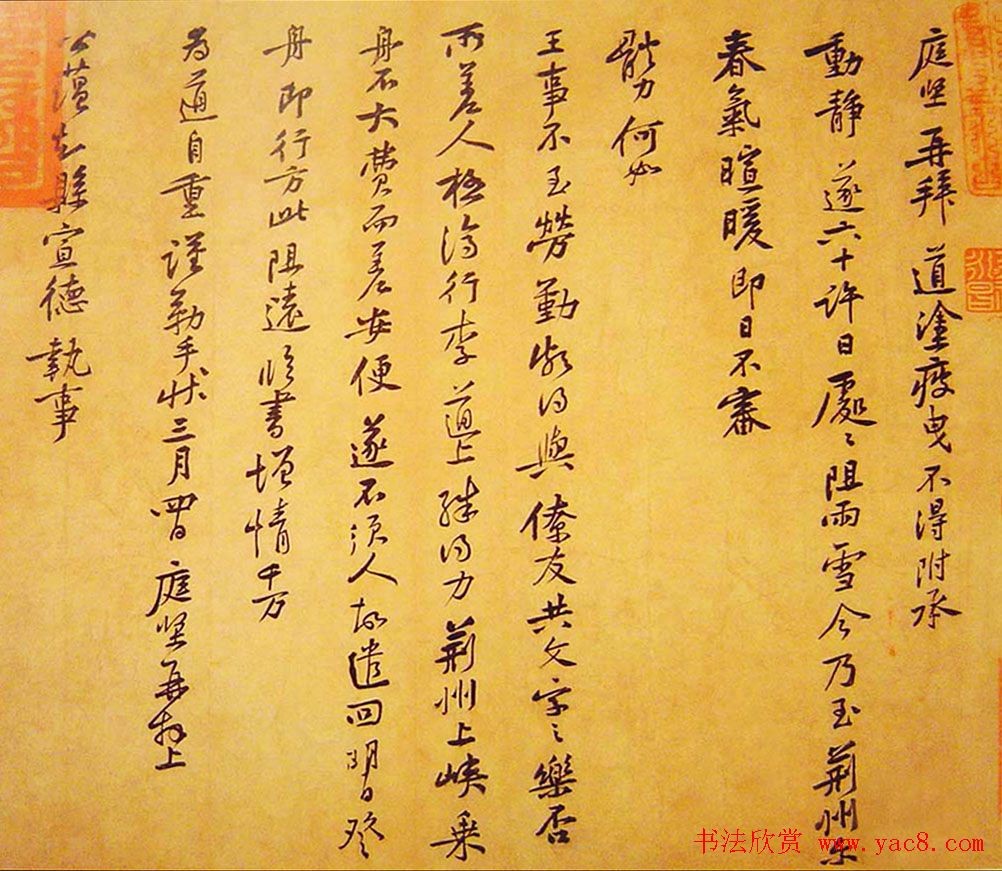 庭坚再拜道塗疲曳不得附承
動靜遂六十許日處〻阻雨雪今乃至荊州耳
春氣暄暖即日不審
體力何如
王事不至勞勤頗得與僚友共文字之樂否
所差人極濟行李道上殊得力荊州上峽乘
舟不大費而差安便遂不須人故遣回明日登
舟即行方此阻遠臨書增情千万
為道自重謹勒手狀三月四日庭坚再拜上
公蘊知縣宣德執事
书法欣赏 www.yac8.com